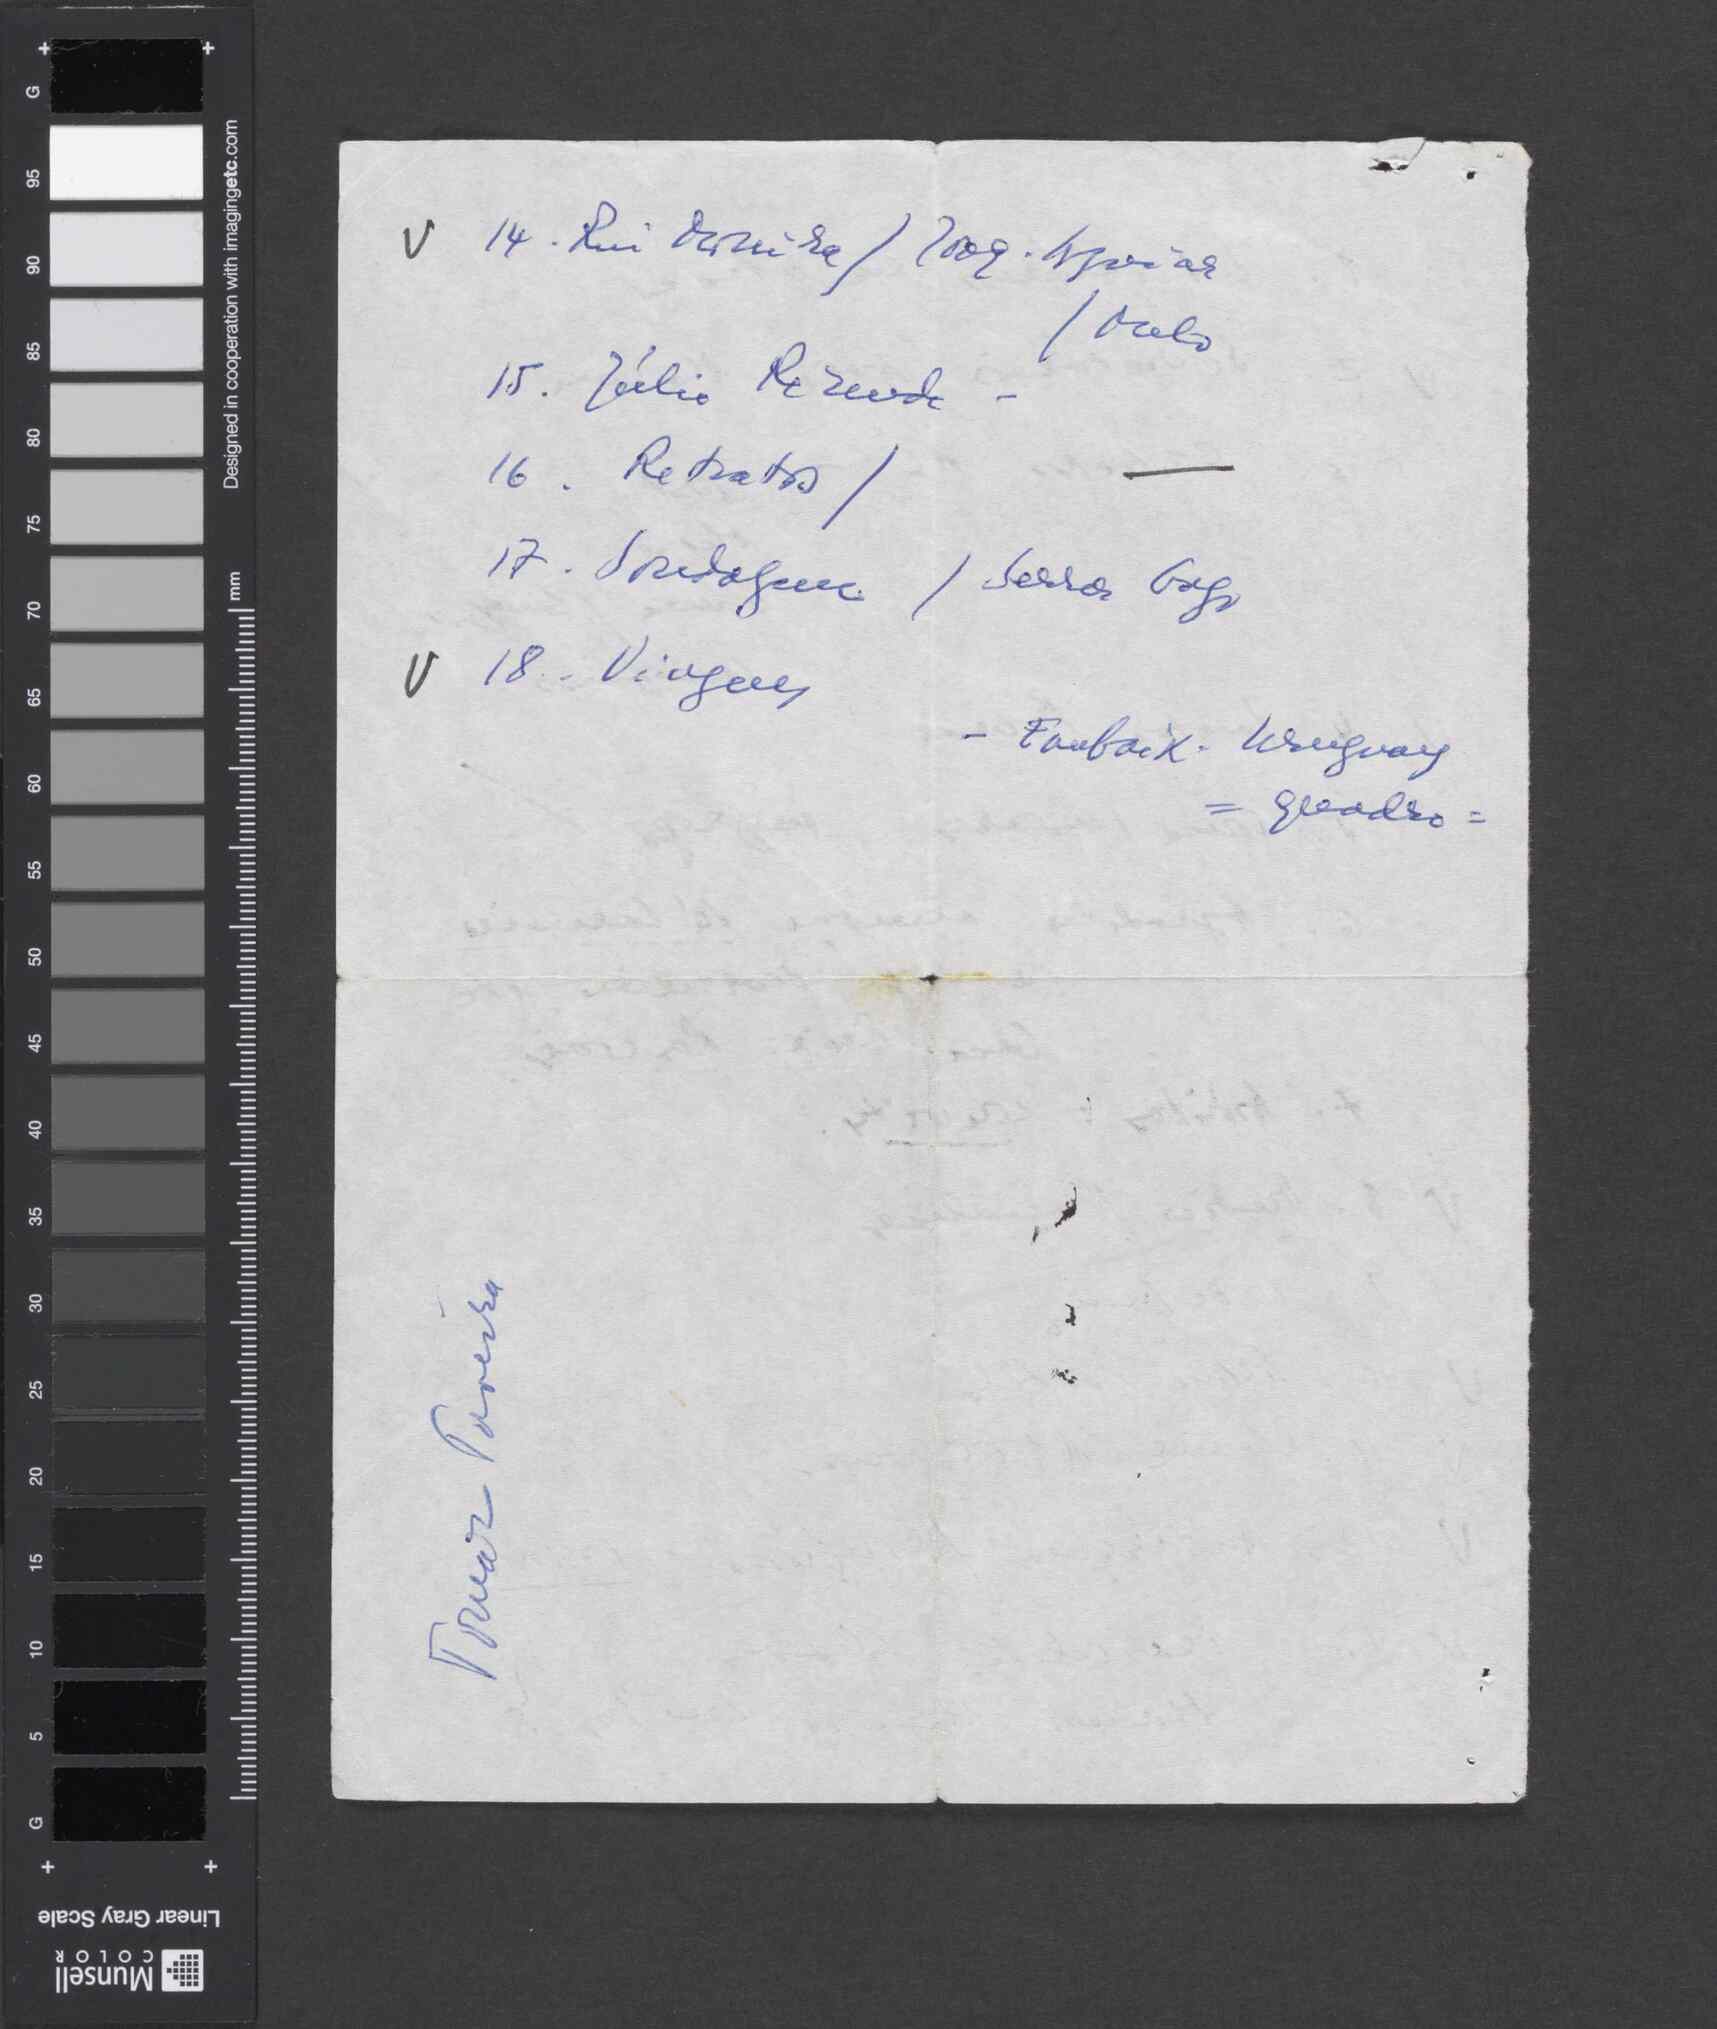 V 14. Rui Moreira / Joaq. Aguiar
/ Melo
15. Júlio Rezende -
16. Retratos /
17. Sondagem / Serra
V 18. Viagens
- Uruguay
= quadro =
Tomaz Taveira
G
95
90
85
80
75
70
65
60
55
50
45
40
35
30
25
20
15
10
5
G
Designed in cooperation with imagingetc.com
mm
Linear Gray Scale
Munsell
COLOR